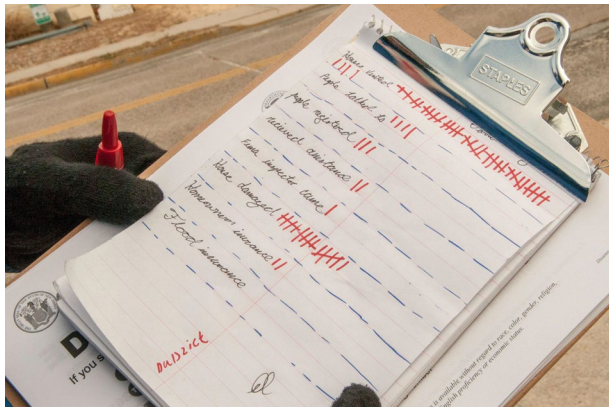 STAPLES
House visited
People talked to
people registered
received assistance
Fema inspector came
House damaged
Homeowners insurance
Flood insurance
If you s
is available without regard to race, color, gender, religion,
English proficiency or economic status.